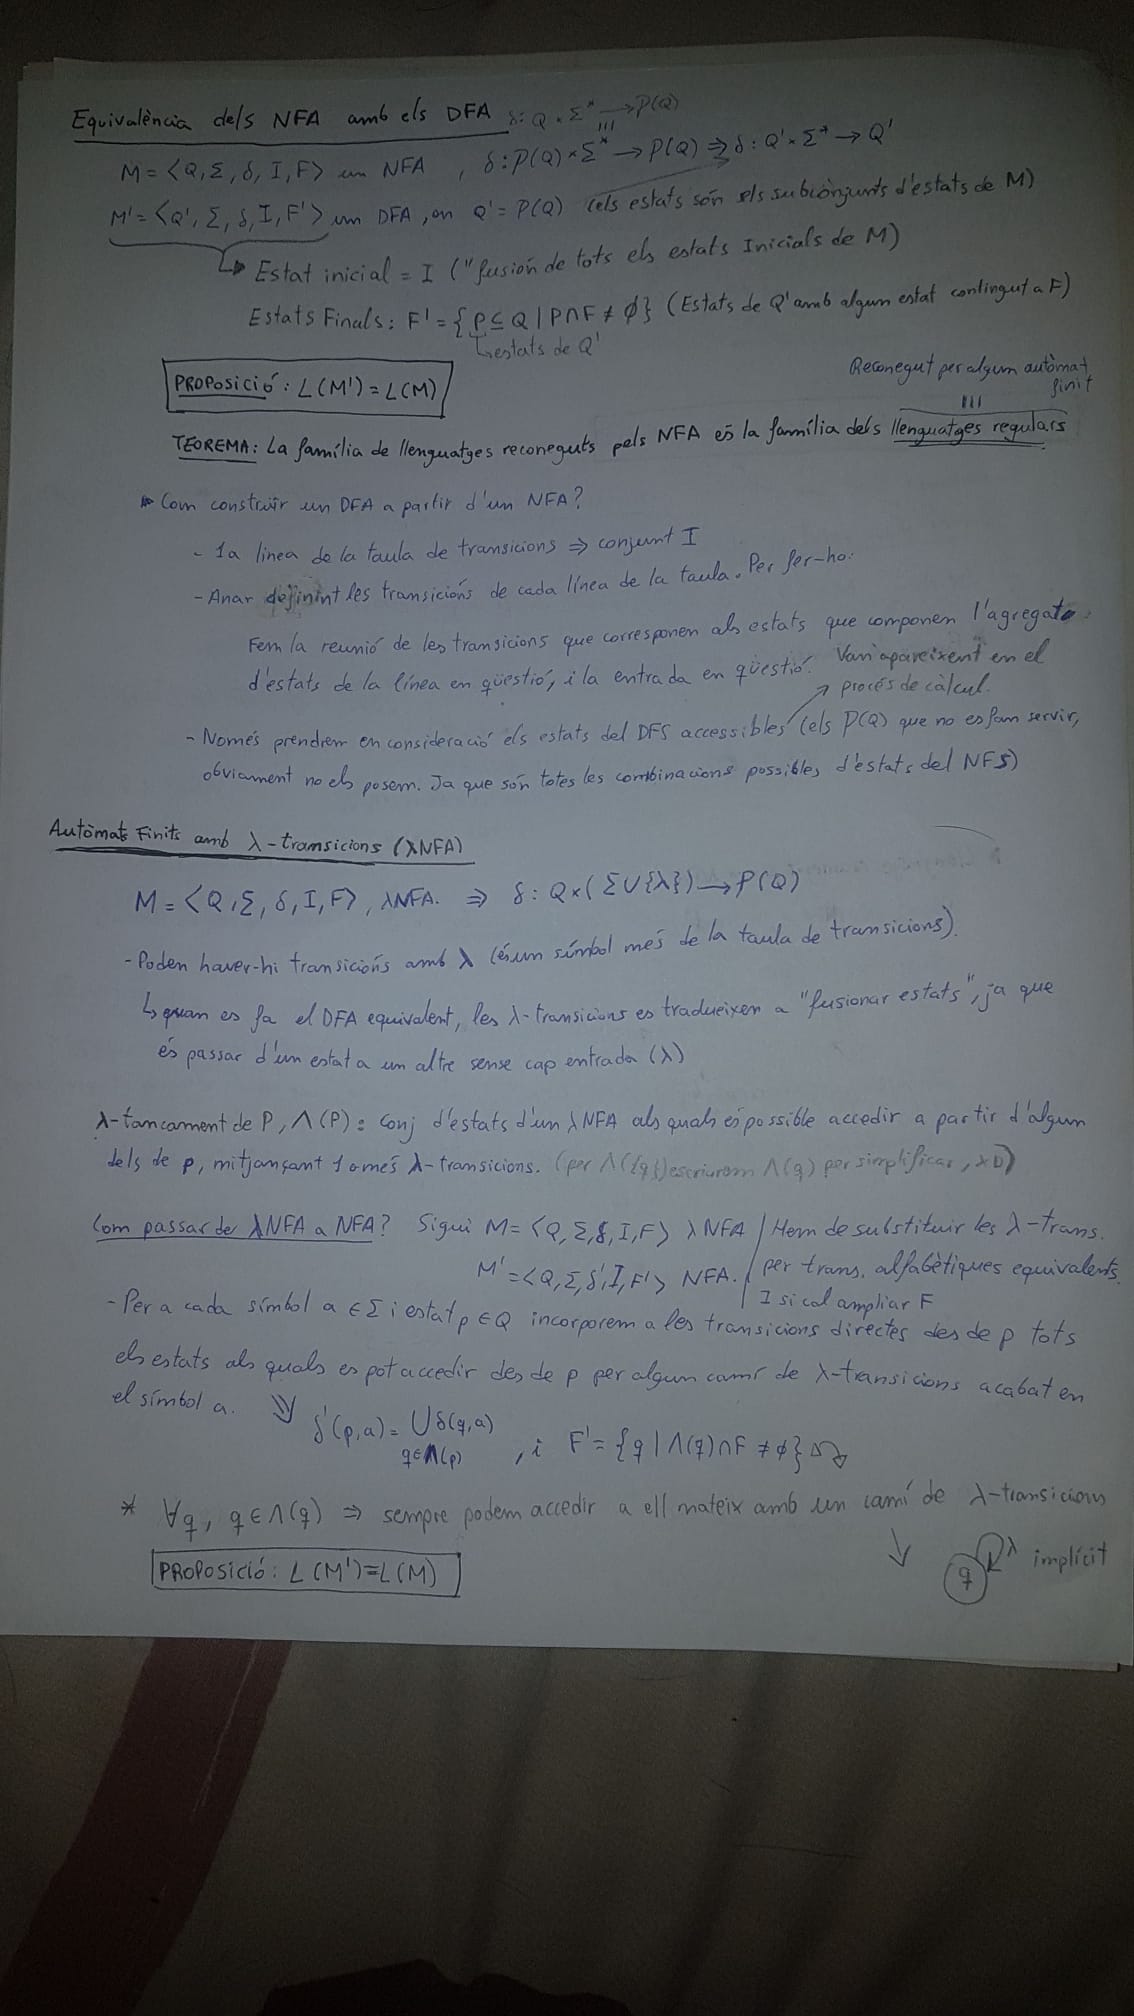 Equivalència dels NFA amb els DFA δ: Q × Σ* → P(Q)
M = <Q, Σ, δ, I, F> un NFA , δ: P(Q) × Σ* → P(Q) ⇒ δ: Q' × Σ* → Q'
M' = <Q', Σ, δ, I, F'> un DFA, on Q' = P(Q) (els estats són els subconjunts d'estats de M)
↳ Estat inicial = I ("fusión de tots els estats Inicials de M)
Estats Finals: F' = {P ⊆ Q | P ∩ F ≠ ∅} (Estats de Q' amb algun estat contingut a F)
↳ estats de Q'
PROPOSICIÓ: L(M') = L(M)
Reconegut per algun autòmat
finit
TEOREMA: La família de llenguatges reconeguts pels NFA és la família dels llenguatges regulars
Com construïr un DFA a partir d'un NFA?
- 1a línea de la taula de transicions ⇒ conjunt I
- Anar definint les transicións de cada línea de la taula. Per fer-ho:
Fem la reunió de les transicions que corresponen als estats que componen l'agregato
d'estats de la línea en qüestió, i la entrada en qüestió.
Van apareixent en el
procés de càlcul.
- Només prendrem en consideració els estats del DFS accessibles (els P(Q) que no es fan servir,
obviament no els posem. Ja que són totes les combinacions possibles d'estats del NFS)
Autòmats Finits amb λ-transicions (λNFA)
M = <Q, Σ, δ, I, F>, λNFA. ⇒ δ: Q × (Σ ∪ {λ}) → P(Q)
- Poden haver-hi transicións amb λ (és un símbol més de la taula de transicions).
↳ quan es fa el DFA equivalent, les λ-transicions es tradueixen a "fusionar estats", ja que
és passar d'un estat a un altre sense cap entrada (λ)
λ-tancament de P, Λ(P): Conj d'estats d'un λNFA als quals és possible accedir a partir d'algun
dels de p, mitjançant 1 o més λ-transicions. (per Λ({q}) escriurem Λ(q) per simplificar, xD)
Com passar de λNFA a NFA? Sigui M = <Q, Σ, δ, I, F> λNFA / Hem de substituir les λ-trans.
M' = <Q, Σ, δ', I, F'> NFA. / per trans. alfabètiques equivalents.
I si cal ampliar F
- Per a cada símbol a ∈ Σ i estat p ∈ Q incorporem a les transicions directes des de p tots
els estats als quals es pot accedir des de p per algun camí de λ-transicions acabat en
el símbol a. ⇓ δ'(p,a) = ∪ δ(q,a)
q∈Λ(p) , i F' = {q | Λ(q) ∩ F ≠ ∅}
* ∀q, q ∈ Λ(q) ⇒ sempre podem accedir a ell mateix amb un camí de λ-transicions
↓ q λ implícit
PROPOSICIÓ: L(M') = L(M)